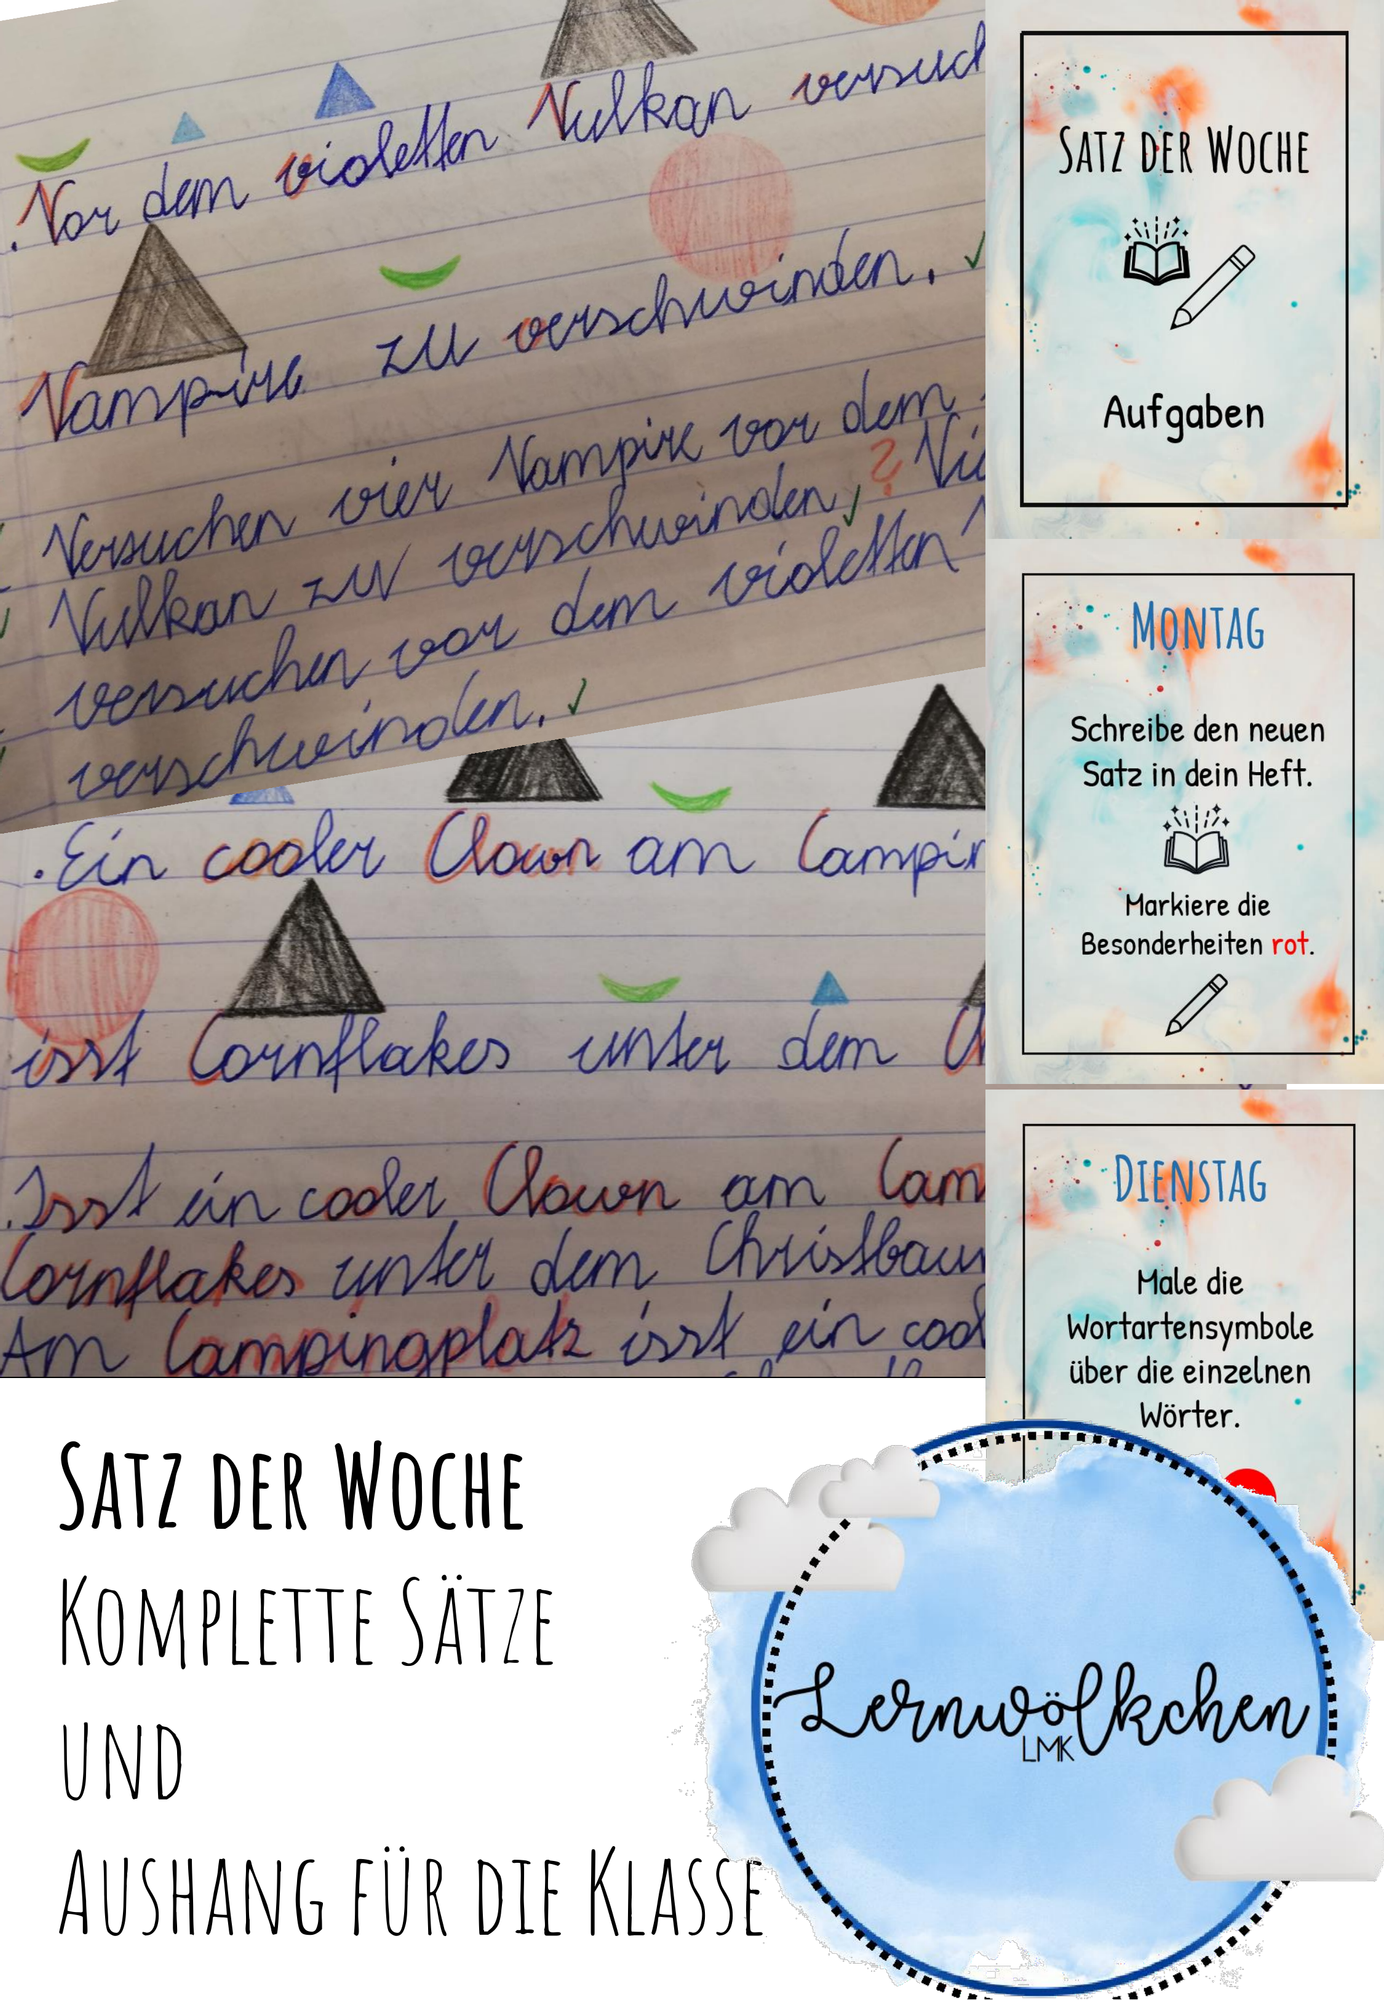 .Vor dem violetten Vulkan
Vampire zu verschwinden.
Versuchen vier Vampire vor dem
Vulkan zu verschwinden, ?
versuchen vor dem violetten
verschwinden.
.Ein cooler Clown am
isst Cornflakes unter dem
.Isst ein cooler Clown am
Cornflakes unter dem
Am Campingplatz isst ein
SATZ DER WOCHE
Aufgaben
MONTAG
Schreibe den neuen
Satz in dein Heft.
Markiere die
Besonderheiten rot.
DIENSTAG
Male die
Wortartensymbole
über die einzelnen
Wörter.
SATZ DER WOCHE
KOMPLETTE SÄTZE
UND
AUSHANG FÜR DIE KLASSE
Lernwölkchen
LMK